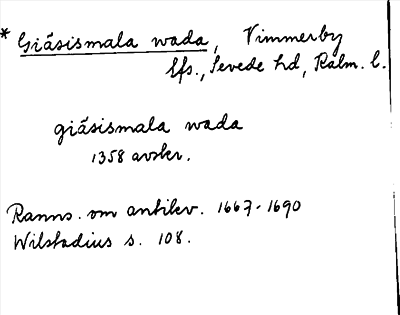 * Giäsismala wada, Vimmerby
lfs., Sevede hd, Kalm. l.
giäsismala wada
1358 avskr.
Ranns. om antikv. 1667-1690
Wilstadius s. 108.